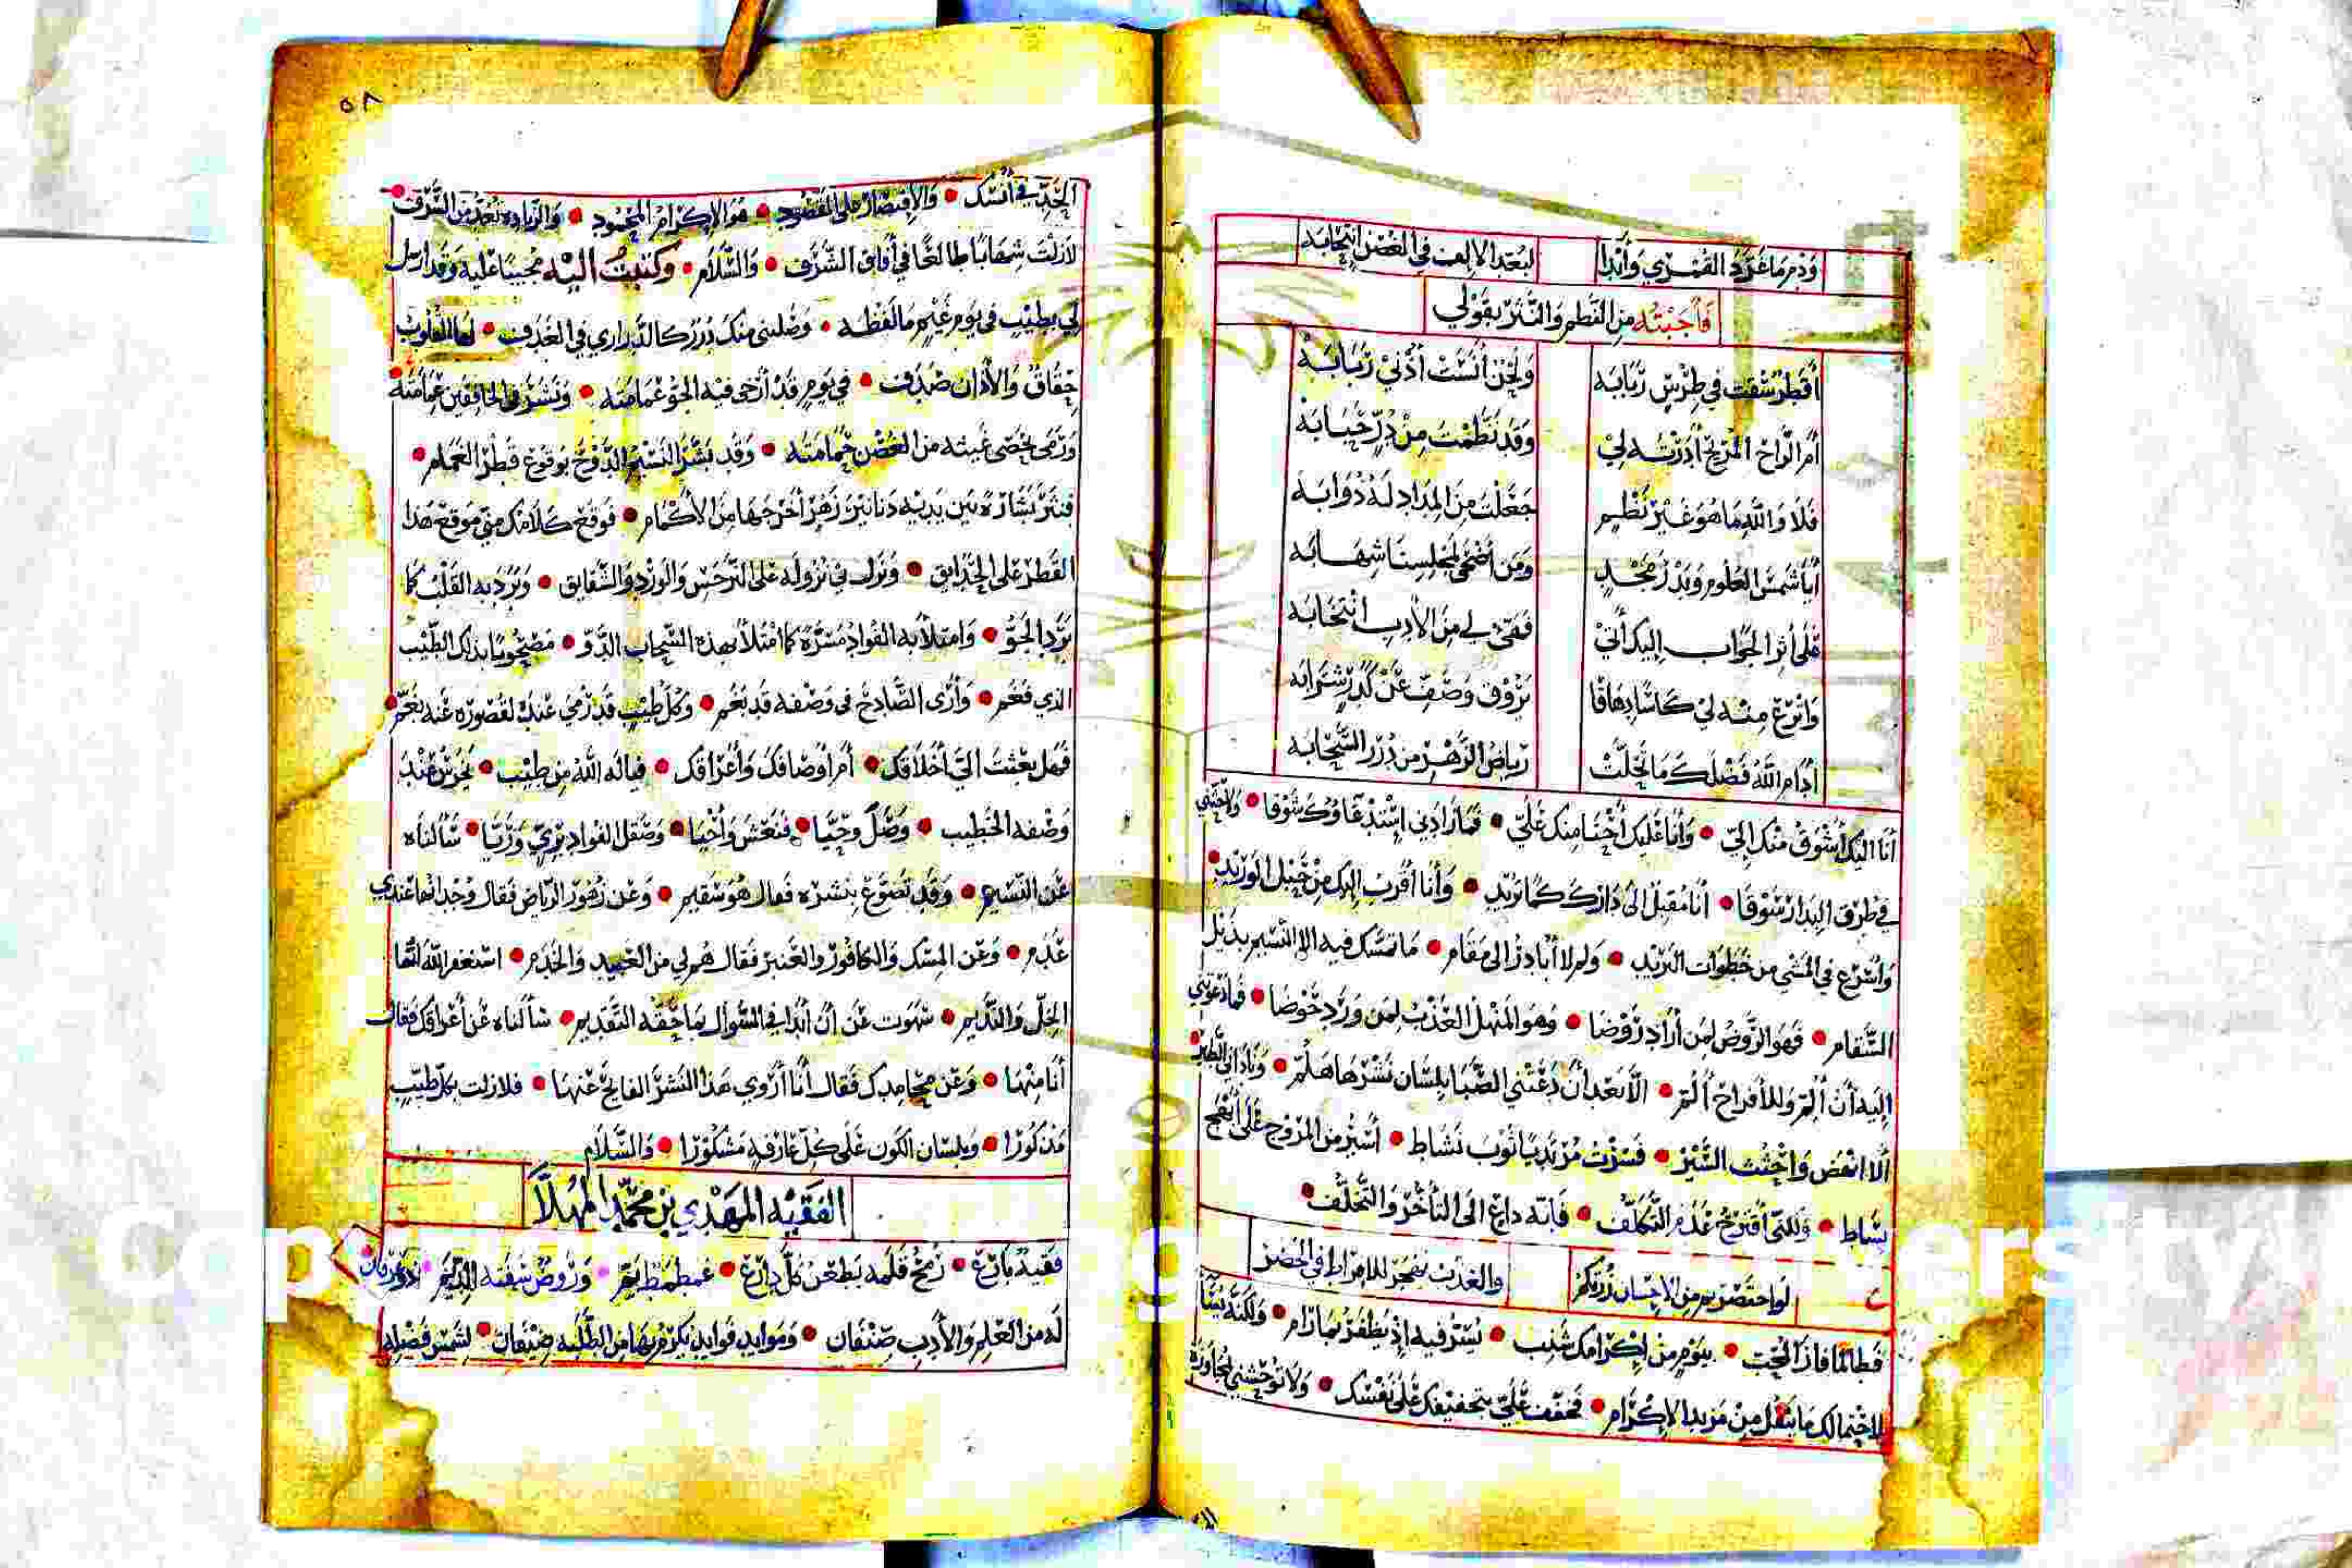 وَدُمْ مَا غَرَّدَ القُمْرِي وَأبْدَا لبُعْدِ الالِفِ في الغُصْنِ انْتِحَابَه
فَأجَبْتُه مِنَ النَّظْمِ وَالنَّثْرِ بِقَوْلِي
أقَطْرٌ شَفَّتَ في طِرْسٍ رَبَابَه وَلَحْنٌ أنْسَتْ أُذْنِي رَبَابَه
أمِ الرَّاحُ المُرِيحُ أدَرْتَه لِي وَقَد نَظَمْتَ مِنْ دُرٍّ حَبَابَه
فَلَا وَاللّهِ مَا هُوَ غَيْرُ نَظْمٍ جَعَلْتَ مِنَ المِدَادِ لَهُ ذُوَابَه
أيَا شَمْسَ العُلُومِ وَبَدْرَ مَجْدٍ وَمَن أضْحَى لِمَجْلِسِنَا شِهَابَه
عَلَى أثَرِ الجَوَابِ إليكَ أنِّي فَفِي لِي مِنَ الأدَبِ انْتِخَابَه
وَاتْرِعْ مِنْه لِي كَاسًا دِهَاقًا يَرُوقُ وَصَفِّ عَنْ كَدَرٍ شَرَابَه
أدَامَ اللّهُ فَضْلَكَ مَا تَحَلَّتْ رِيَاضُ الزَّهْرِ مِن دُرَرِ السَّحَابَه
أنَا اليْكَ أشْوَقُ مْنكَ إليّ • وَأنَا عَليكَ أحْنَا مِنكَ عَلَيّ • فَمَا زَادَنِي اسْتِدْعَاؤُكَ شَوْقا • وَلا حَثَّنِي
في طُرُقِ البِدَارِ سَوْقَا • أنَا مُقبِلٌ الىَ دَارِكَ كَمَا تُرِيد • وَأنا أقْرَبُ إليكَ مِنْ حَبْلِ الوَرِيد •
وَاسْرَعُ في المَشْيِ مِن خَطَوَاتِ البَرِيد • وَلِمَ لا أبَادِرُ الى مَقَام • مَا تَمَسَّكَ فيهِ الا النَّسِيمُ بِذَيْلِ
السَّقَام • فَهوَ الرَّوْضُ لِمَن أرَادَ رَوْضَا • وَهوَ المَنْهَلُ العَذْبُ لِمَن وَرَدَ حَوْضَا • فَمَا دَعَوْتَنِي
إليَه أنْ ألِمَّ وَللأفْرَاحِ ألُمّ • الّا بَعْدَ أنْ دَعَتْنِي الصَّبَا بِلِسَانِ نَشْرِهَا هَلُمّ • وَنَادَانِي الطَّيْر
ألا انْهَض وَاحْثُثِ السَّيْر • فَسِرْتُ مُرْتَدِيًا ثَوْبَ نَشَاط • أسِيرُ مِن المُرُوجِ عَلَى أبْهَج
بِسَاط • وَلكنِّي أقتَرِحُ عَدَمَ التَّكَلُّف • فَانّه دَاعٍ الَى التَّأخُّرِ وَالتَّخَلُّف •
لَوِ اختَصَرْتم مِنَ الاحْسَانِ زُرْتُكُمْ والعَذْبُ يُهْجَرُ للافْرَاطِ في الخَصَرْ
فَطَالَمَا فَازَ المُحِبّ • بِيَوْمٍ مِنْ إكْرَامِكَ شَنِب • يُسَرُّ فيهِ إذْ يَظفَرُ بِمَا رَام • وَلَكنَّهُ
لِاحْتِمَالِكَ مَا يَثْقُلُ مِنْ مَزِيدِ الاكْرَام • فَخَفِّفْ عَلَيّ بِتَخْفِيفِكَ عَلَى نَفْسِك • وَلَا تُوْحِشْنِي بِمُجَاوَزَة
٥٨
الحَدِّ في أُنْسِك • وَالاقتِصَارُ عَلى المَقصُود • هُوَ الاكْرَامُ المَحْمُود • وَالزّيَادَه تُعَدُّ مِنَ السَّرَف •
لَازِلْتَ شِهَابًا طَالعًا في أفَاقِ الشَّرَف • وَالسَّلَام • وَكَتَبْتُ اليْه مُجيبًا عَليهِ وَقَد ارْسَل
لِي بِطِيْبٍ في يَومِ غَيْمٍ مَا لَفْظُه • وَصَلَتنِي مِنكَ دُرَرٌ كَالدَّرَارِي في الغُدَف • لَهَا القُلُوبُ
حِقَاقٌ وَالأذَانُ صَدَف • في يَومٍ قَدْ أرْخَى فيهِ الجَوُّ غَمَامَتَه • وَنَشَرَ في الخَافِقَيْنِ عِمَامَتَه •
وَرَمَى بِحَصَى غَيثِه مِن الغُصْنِ حَمَامَتَه • وَقَد بَشَّرَ النَّسِيْمُ الدَّوْحَ بِوُقُوعِ قَطْرِ الغَمَام •
فَنَثَرَ بَشَارَةً بَيْنَ يَدَيْهِ دَنَانِيْرَ زَهْرٍ أخْرَجَهَا مِنَ الأكْمَام • فَوَقَعَ كَلَامُكَ مِنّي مَوقِعَ هَذا
القَطْرِ عَلى الحَدَايِق • وَنَزَلَ فِي نُزُولِه عَلى النَّرْجِسِ وَالوَرْدِ وَالشَّقَايِق • وَبَرَدَ بِه القَلْبُ كَمَا
بَرَدَ الجَوّ • وَامتَلَأ بِه الفُوَادُ مَسَرَّةً كَمَا امْتَلَأ بِهَذِه السَّحَابِ الدَّوّ • مَصْحُوبًا بِذَلكَ الطّيْبِ
الذِي فَغَم • وَأرَى الصَّادِحَ في وَصْفِه قَد بَغَم • وَكُلُّ طِيْبٍ قَد رُمِيَ عَنكَ لقُصُورِه عَنه بِغَمّ •
فَهَل بَعَثتَ اليَّ أخْلَاقَك • أمْ أوْصَافَكَ وَأعْرَاقَك • فيَالَه اللّهُ مِن طِيْب • يَخْرَسُ عِنْدَ
وَصْفِه الخَطِيب • وَصَلَ وَحَيَّا • فَنَعَشَ وَأحْيَا • وَصَقَلَ الفُوَادَ بِرِيٍّ وَرَيَّا • سَألنَاه
عَنِ النَّسِيم • وَقَد تَضَوَّعَ بِنَشْرِه فَقال هُوَ سَقِيم • وَعَن زُهُورِ الرِيَاضِ فَقَال وُجْدَانُهَا عِنْدِي
عَدَم • وَعَنِ المِسْكِ وَالكَافُورِ وَالعَنبَرِ فَقَال هُم لِي مِنَ العَبِيدِ وَالخَدَم • اسْتَغفِرُ اللّهَ انّهَا
الخِلّ وَالنَّدِيم • سَهَوْتُ عَن أنْ أبْدَا في السُّوَالِ بِمَا حَقُّه التَقْدِيم • سَألنَاه عَنْ أعْرَاقِكَ فَقَال
أنَا مِنْهَا • وَعَنْ مَحَامِدِكَ فَقَالَ أنَا أرْوِي هَذَا النَّشْرَ الفَايِحَ عَنْهَا • فلازِلتَ بِكُلِّ طِيْبٍ
مَذكُورًا • وَبِلِسَانِ الكَونِ عَلَى كُلِّ عَارِفَهٍ مَشكُوْرًا • وَالسَّلَام
الفَقيْه المَهْدِي بن مُحمَّد المُهَلّا
فَقِيهٌ بَارِع • رُمْحُ قَلَمِه يَطْعَنُ كُلَّ دَارِع • غِطمطمُ يَمّ • وَرَوْضُ شَقَّتْه الدِّيَم • ذُو عِرْفَان
لَه مِن العْلِمِ وَالأدَبِ صِنْفَان • وَمَوَايِدِ فَوَايِدٍ يُكرمُ بِهَا مِنَ الطّلَبَه ضِيْفَان • لِشَمْسِ فَضْلِه